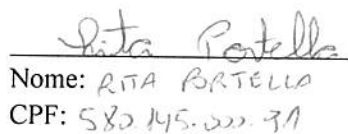 Rita Portella
Nome: RITA PORTELLA
CPF: 580.145.000.91